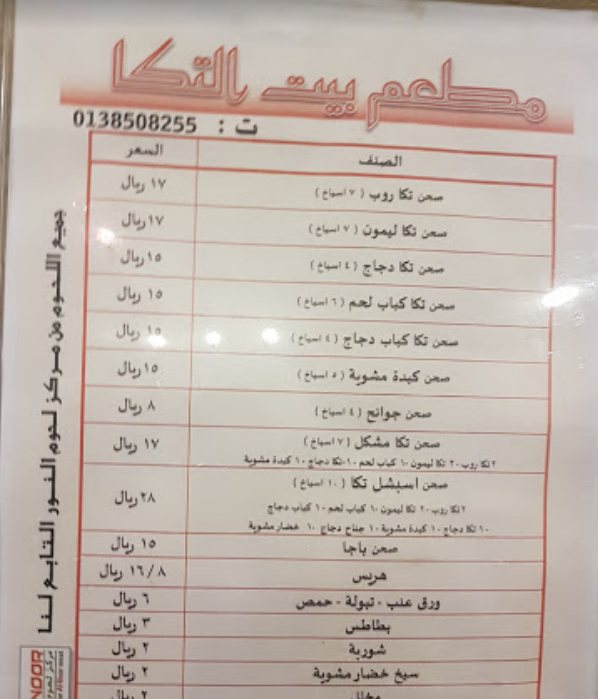 مطعم بيت التكا
ت : 0138508255
الصنف السعر
صحن تكا روب ( ٧ اسياخ ) ١٧ ريال
صحن تكا ليمون ( ٧ اسياخ ) ١٧ ريال
صحن تكا دجاج ( ٤ اسياخ ) ١٥ ريال
صحن تكا كباب لحم ( ٦ اسياخ ) ١٥ ريال
صحن تكا كباب دجاج ( ٤ اسياخ ) ١٥ ريال
صحن كبدة مشوية ( ٥ اسياخ ) ١٥ ريال
صحن جوانح ( ٤ اسياخ ) ٨ ريال
صحن تكا مشكل ( ٧ اسياخ ) ١٧ ريال
٢ تكا روب - ٢ تكا ليمون - ١ كباب لحم - ١ تكا دجاج - ١ كبدة مشوية
صحن اسبشل تكا ( ١٠ اسياخ ) ٢٨ ريال
٢ تكا روب - ٢ تكا ليمون - ١ كباب لحم - ١ كباب دجاج
- ١ تكا دجاج - ١ كبدة مشوية - ١ جناح دجاج - ١ خضار مشوية
صحن باجا ١٥ ريال
هريس ١٦/٨ ريال
ورق عنب - تبولة - حمص ٦ ريال
بطاطس ٣ ريال
شوربة ٢ ريال
سيخ خضار مشوية ٢ ريال
مخلل ٢ ريال
جميع اللحوم من مركز لحوم النور التابع لنا
NOOR
مركز لحوم